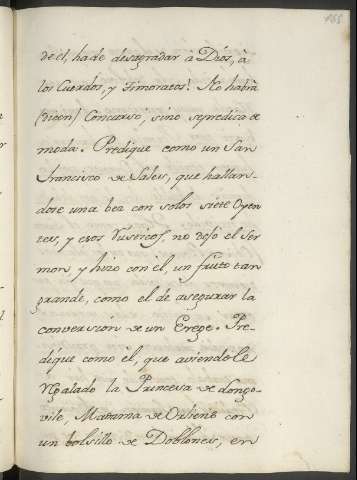 168
de el, ha de desagradar à Dios, à
los Cuerdos, y Timoratos! No habrà
(dicen) Concurso, sino se predica de
moda. Predique como un San
Francisco de Sales, que hallan-
dose una bez con solos siete Oyen
tes, y esos Rusticos, no dejò el Ser
mon, y hizo con èl, un fruto tan
grande, como el de asegurar la
conversion de un Erege. Pre-
dique como èl, que aviendole
Rgalado la Princesa de Longo-
vile, Madama de Orliens con
un bolsillo de Doblones, en